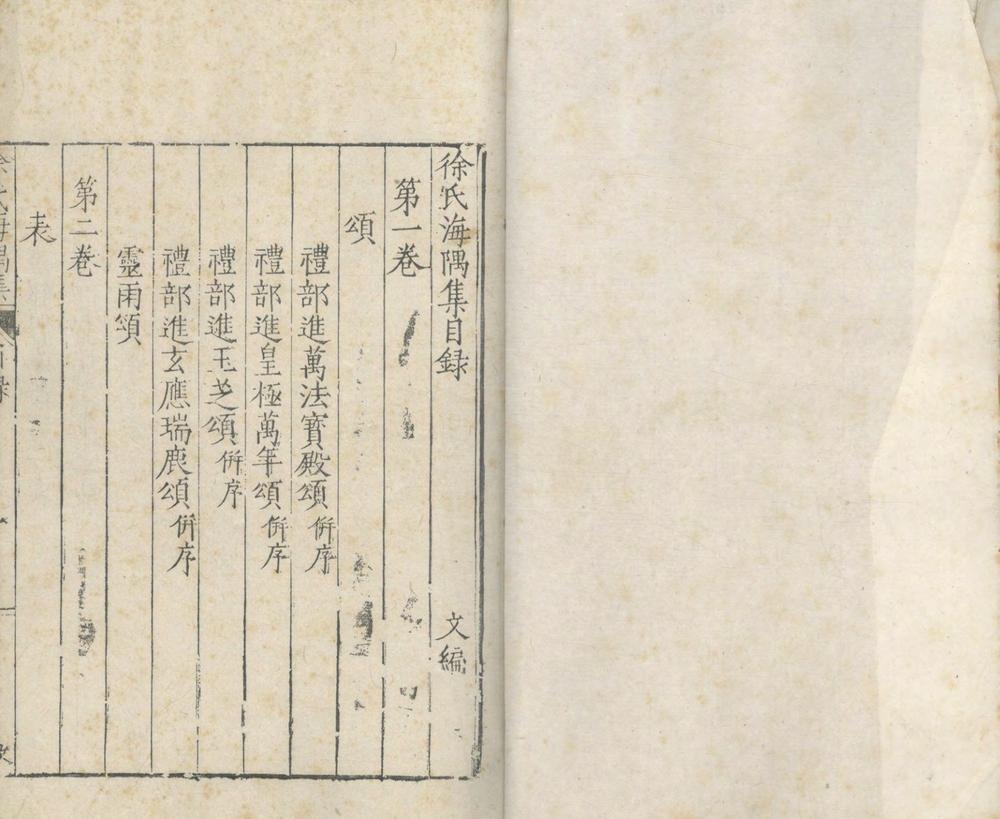 徐氏海隅集目録 文編
第一卷
頌
禮部進萬法寶殿頌 併序
禮部進皇極萬年頌 併序
禮部進玉芝頌 併序
禮部進玄應瑞鹿頌 併序
靈雨頌
第二卷
表
徐氏海隅集 目録